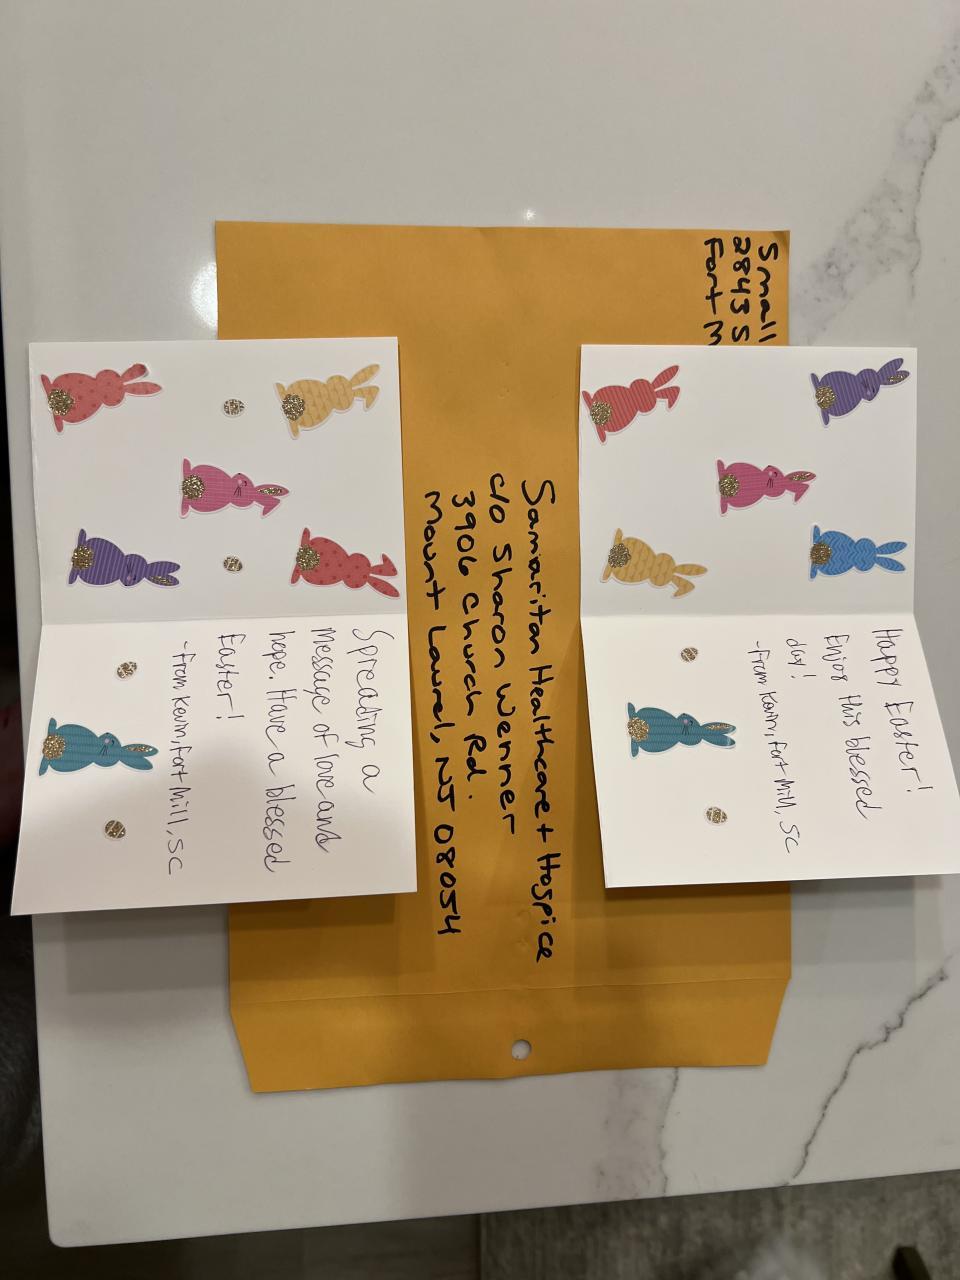 Small
2843 S
Fort M
Samaritan Healthcare + Hospice
c/o Sharon Wenner
3906 Church Rd.
Mount Laurel, NJ 08054
Happy Easter!
Enjoy this blessed
day!
-From Kevin, Fort Mill, SC
Spreading a
message of love and
hope. Have a blessed
Easter!
-From Kevin, Fort Mill, SC